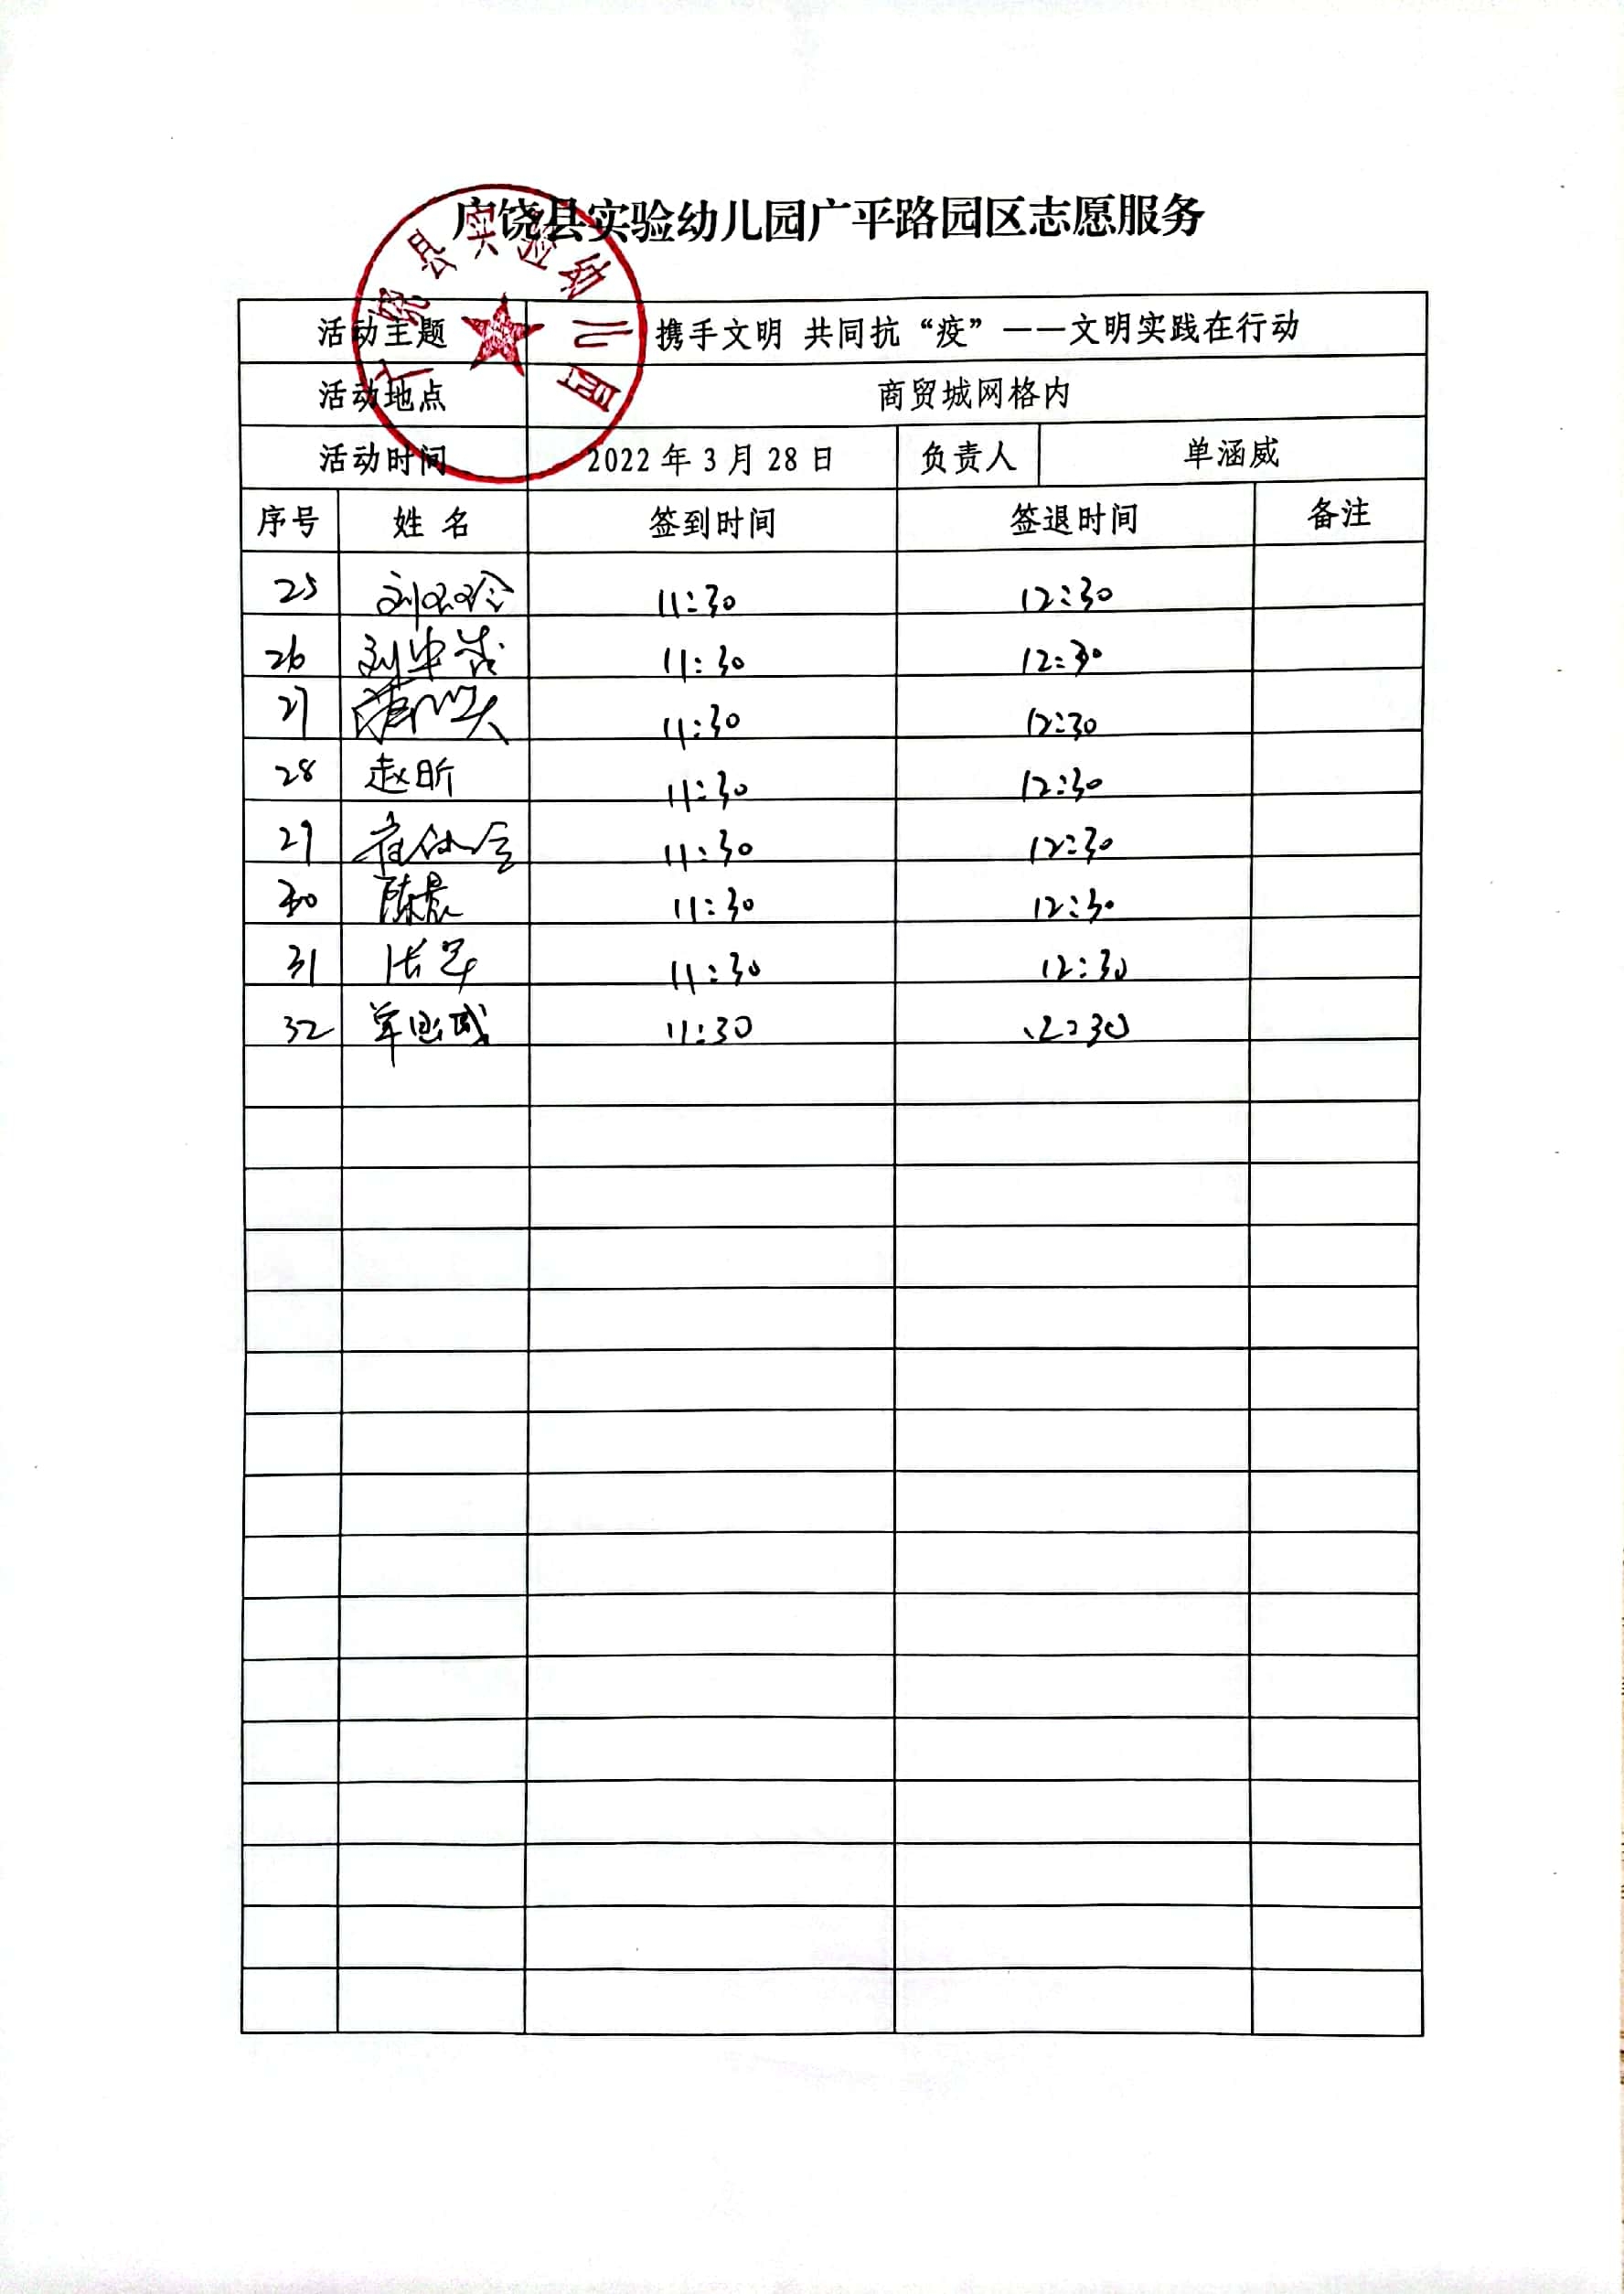 广饶县实验幼儿园广平路园区志愿服务
广饶县实验幼儿园
活动主题 携手文明 共同抗“疫”——文明实践在行动
活动地点 商贸城网格内
活动时间 2022年3月28日 负责人 单涵威
序号 姓名 签到时间 签退时间 备注
25 刘 11:30 12:30
26 刘 11:30 12:30
27 11:30 12:30
28 赵昕 11:30 12:30
29 11:30 12:30
30 陈晨 11:30 12:30
31 张 11:30 12:30
32 单涵威 11:30 12:30